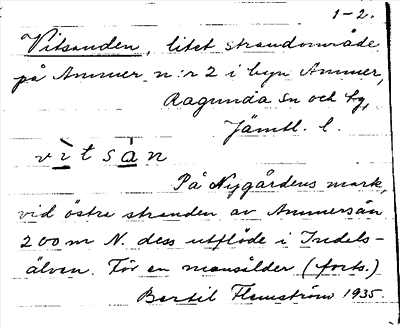 1-2.
Vitsanden, litet strandområde
på Ammer n:r 2 i byn Ammer,
Ragunda sn och tg,
Jämtl. l.
vìtsàn
På Nygårdens mark,
vid östra stranden av Ammersån
200 m N. dess utflöde i Indals-
älven. För en mansålder (forts.)
Bertil Flemström 1935.